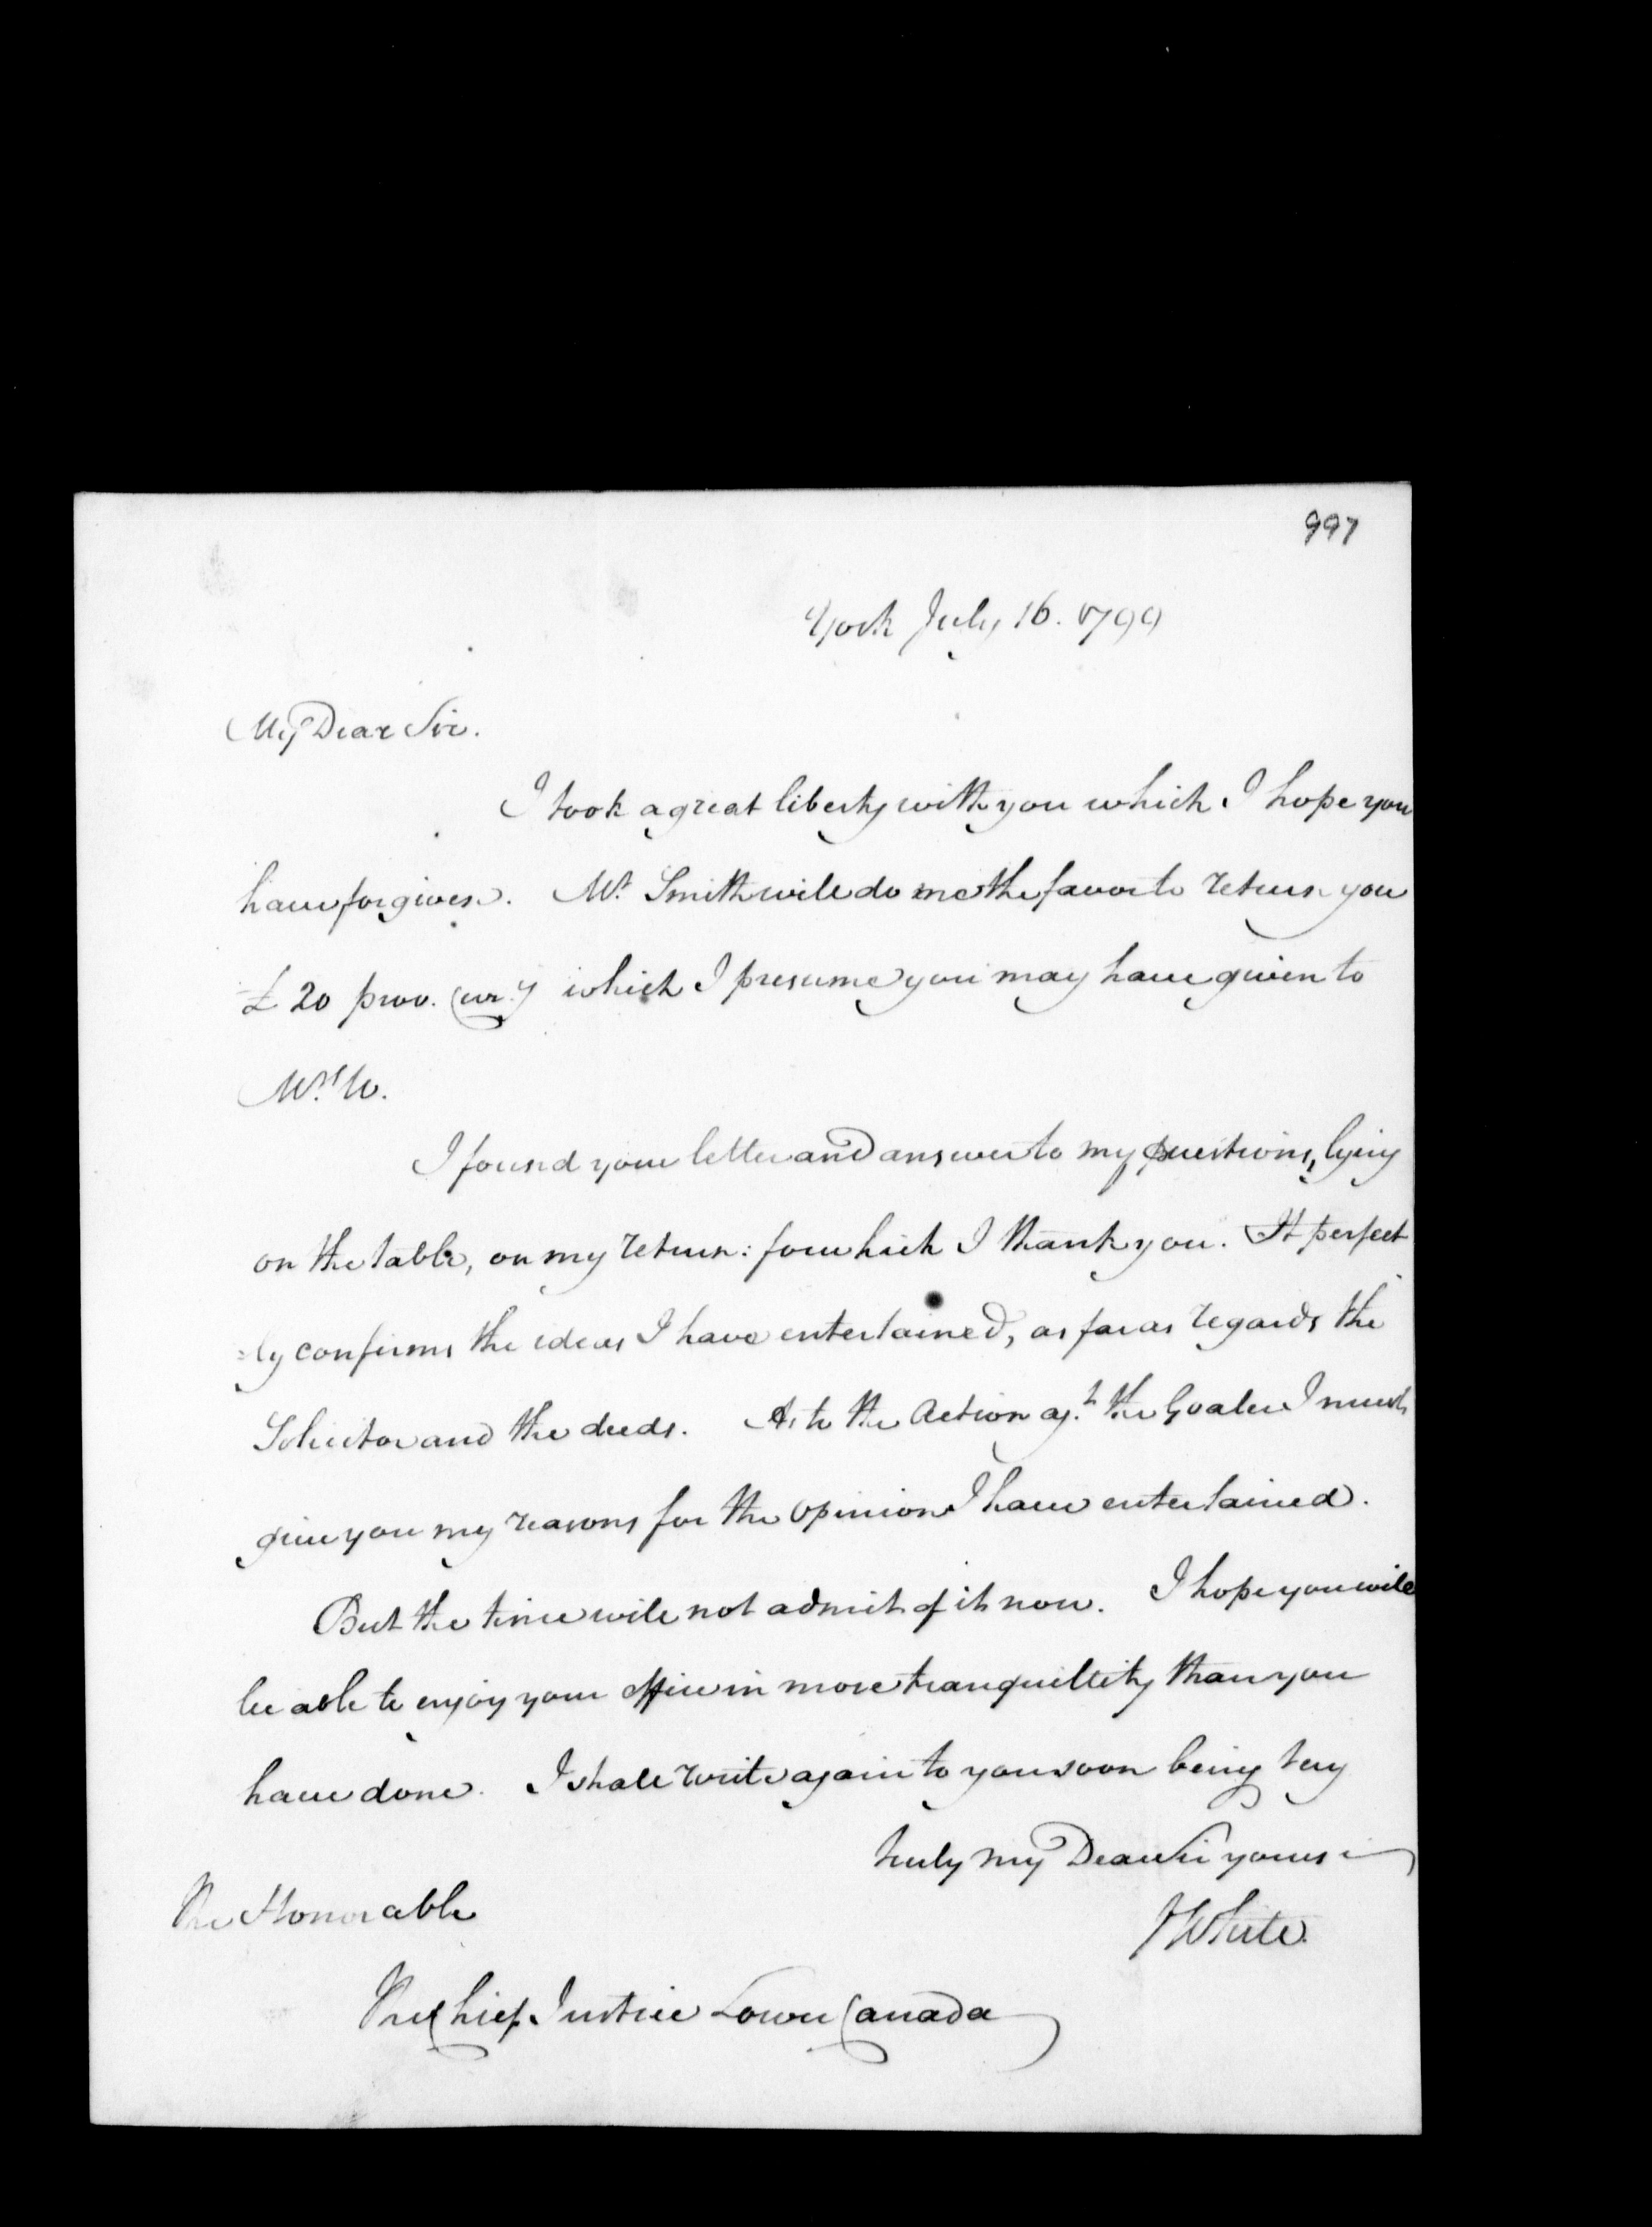 997
York July 16. 1799
My Dear Sir.
I took a great liberty with you which I hope you
have forgiven. Mr. Smith will do me the favor to return you
£ 20 prov. Cur.y which I presume you may have given to
Mrs. W.
I found your letter and answer to my questions, lying
on the table, on my return: for which I thank you. It perfect
=ly confirms the ideas I have entertained, as far as regards the
Solicitor and the deeds. As to the Action agt. the Goaler I must
give you my reasons for the opinion I have entertained.
But the time will not admit of it now. I hope you will
be able to enjoy your office in more tranquillity than you
have done. I shall write again to you soon being very
truly my Dear Sir yours
JWhite.
The Honorable
The Chief Justice Lower Canada